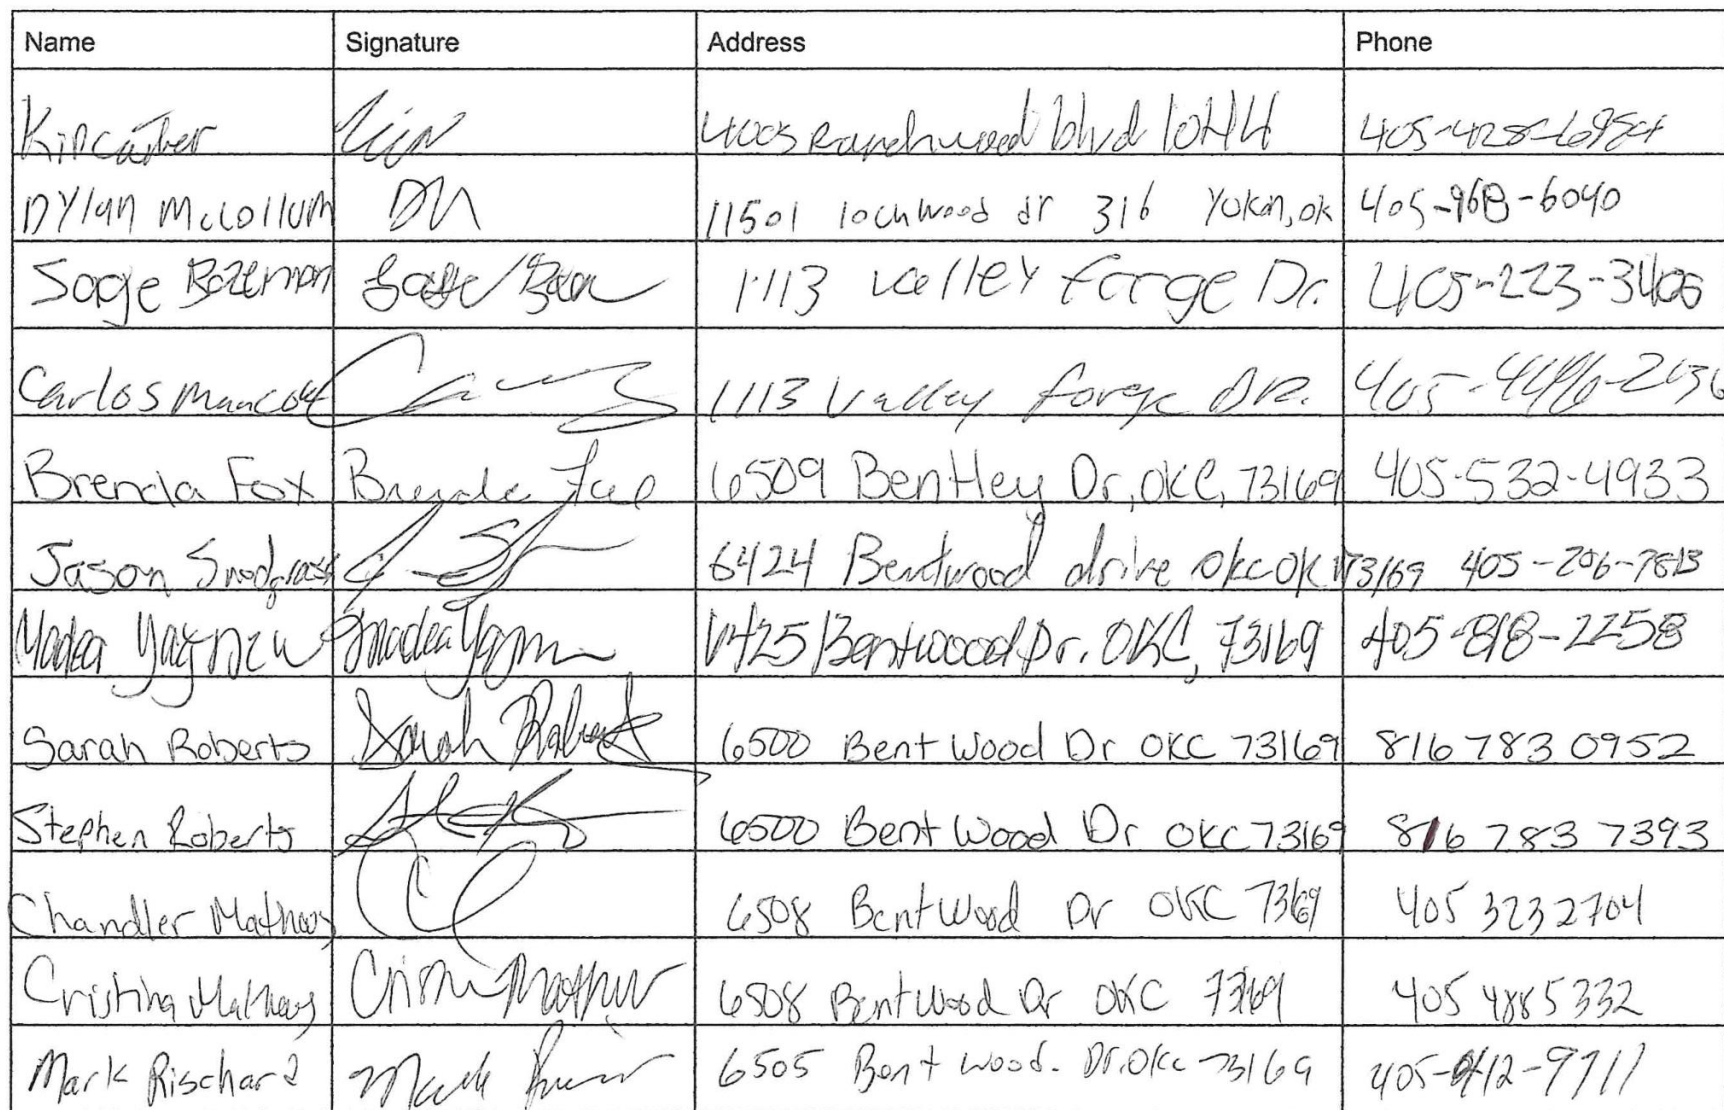 Name Signature Address Phone
Kin Carter 4005 Ranchwood blvd
DYlan McCollum DM 11501 lochwood dr 316 Yukon, ok 405-968-6040
Sage Bozeman 1113 Valley forge Dr. 405-223-3406
Carlos 1113 Valley forge DR.
Brenda Fox Brenda Fox 6509 Bentley Dr, OKC, 73169 405-532-4933
Jason Snodgrass 6424 Bentwood drive OKC OK 73169 405-206-7813
6425 Bentwood Dr. OKC, 73169 405-818-2258
Sarah Roberts Sarah Roberts 6500 Bent Wood Dr OKC 73169 816 783 0952
Stephen Roberts 6500 Bent Wood Dr OKC 73169 816 783 7393
Chandler Mathews 6508 BentWood Dr OKC 73169 405 323 2704
Cristina Mathews 6508 BentWood Dr OKC 73169 405 488 5332
Mark Rischard Mark 6505 Bent wood. Dr. OKc 73169